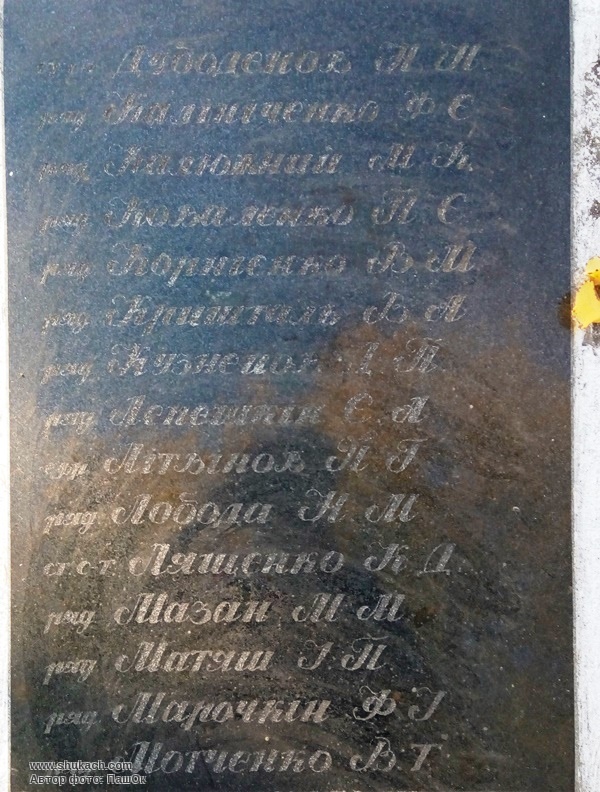 Дубоделов М Н
ряд Калініченко Ф Є
ряд Калюжний М К
ряд Коваленко П Є
ряд Корнієнко В М
ряд Кришталь В А
ряд Кузнецов П
ряд Лепешкін Є А
Літвінов И Г
ряд Лобода Н М
ст с-т Лященко К Д
ряд Мазан М М
ряд Матяш І П
ряд Марочкін Ф І
Мотченко В Т
www.shukach.com
Автор фото: ПашОк